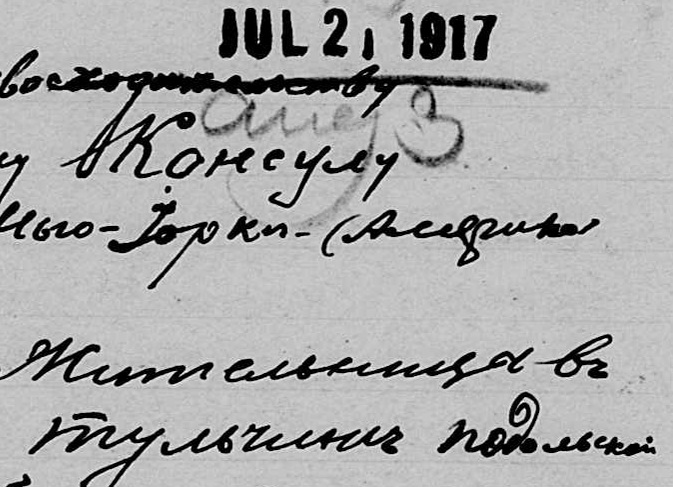 JUL 21 1917
восходительству
Aug 3
у Консулу
Нью-Іорки-(Америка
Жительница въ
Тульчинѣ Подольской